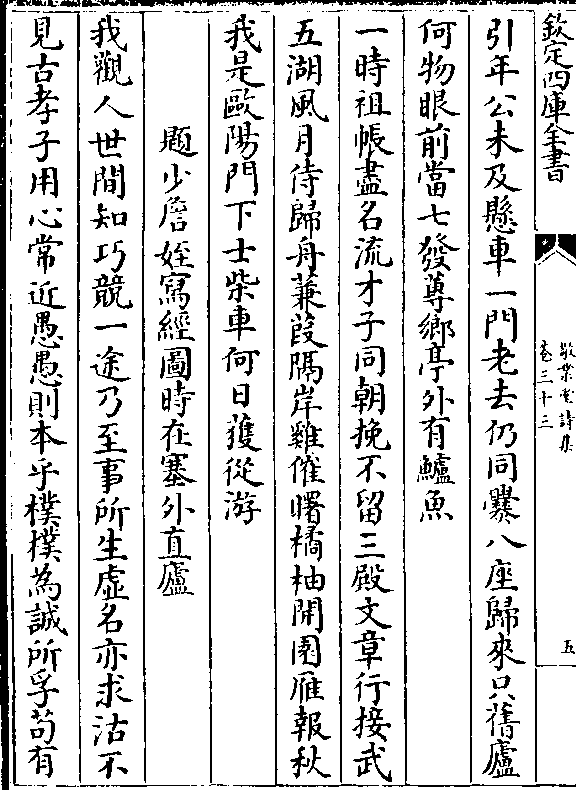 欽定四庫全書
敬業堂詩集
卷三十三
五
引年公未及懸車一門老去仍同爨八座歸來只舊廬
何物眼前當七發蓴鄉亭外有鱸魚
一時祖帳盡名流才子同朝挽不留三殿文章行接武
五湖風月待歸舟蒹葭隔岸雞催曙橘柚開園雁報秋
我是歐陽門下士柴車何日獲從游
題少詹姪寫經圖時在塞外直廬
我觀人世間知巧競一途乃至事所生虛名亦求沽不
見古孝子用心常近愚愚則本乎樸樸為誠所孚苟有